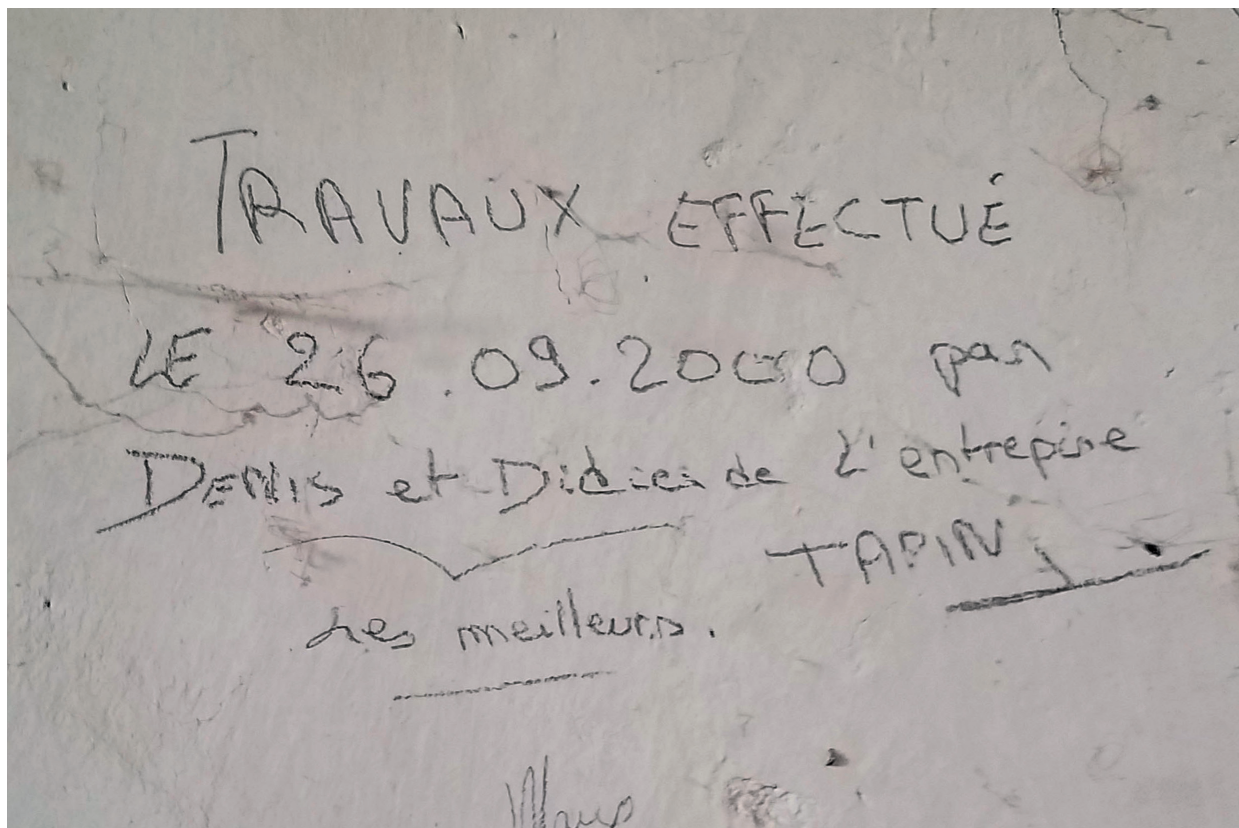 TRAVAUX EFFECTUÉ
LE 26.09.2000 par
DENIS et Didier de L'entrepise
TAPIN
Les meilleurs.